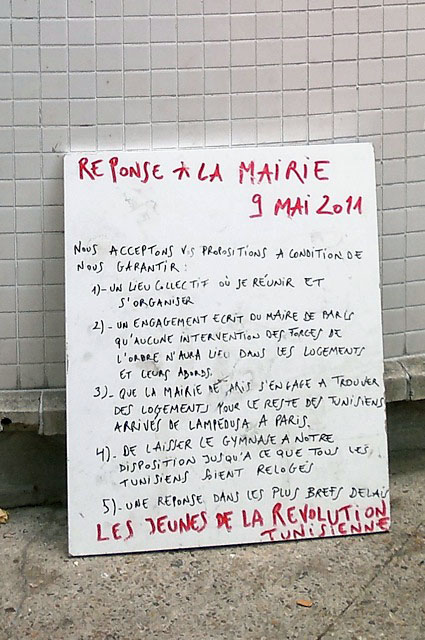 REPONSE A LA MAIRIE
9 MAI 2011
NOUS ACCEPTONS VOS PROPOSITIONS A CONDITION DE
NOUS GARANTIR :
1)- UN LIEU COLLECTIF OÙ SE RÉUNIR ET
S'ORGANISER
2)- UN ENGAGEMENT ECRIT DU MAIRE DE PARIS
QU'AUCUNE INTERVENTION DES FORCES DE
L'ORDRE N'AURA LIEU DANS LES LOGEMENTS
ET LEURS ABORDS.
3)- QUE LA MAIRIE DE PARIS S'ENGAGE A TROUVER
DES LOGEMENTS POUR LE RESTE DES TUNISIENS
ARRIVÉS DE LAMPEDUSA A PARIS.
4)- DE LAISSER LE GYMNASE A NOTRE
DISPOSITION JUSQU'A CE QUE TOUS LES
TUNISIENS SOIENT RELOGÉS
5)- UNE REPONSE DANS LES PLUS BREFS DELAIS
LES JEUNES DE LA REVOLUTION
TUNISIENNE